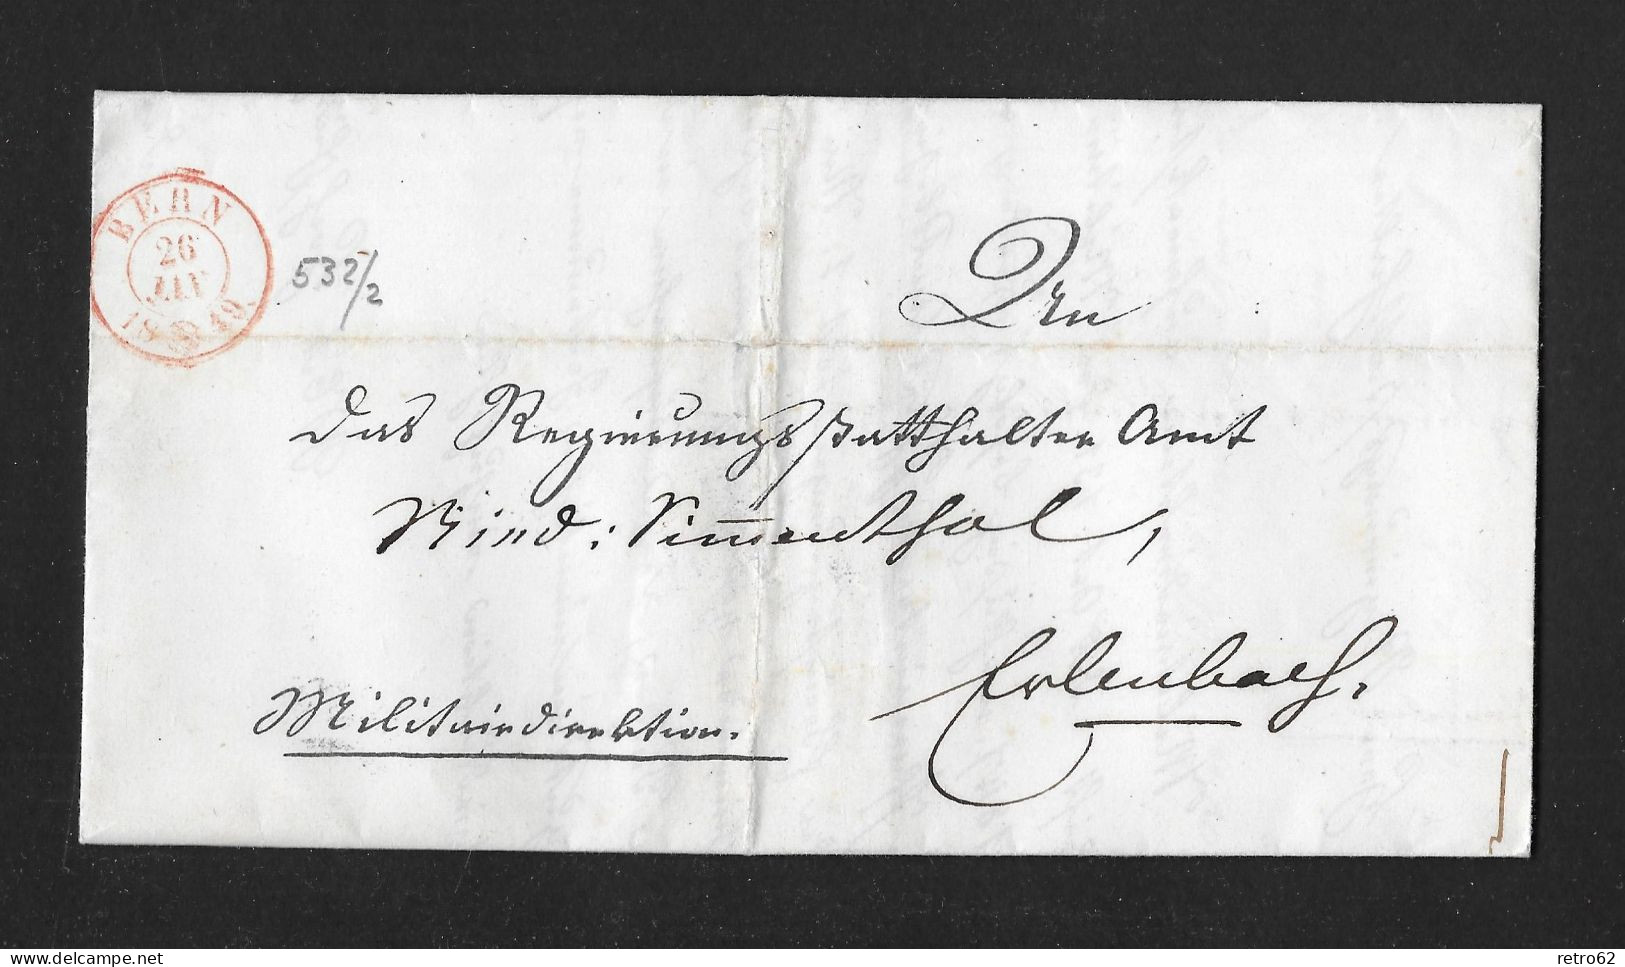 BERN
26
JAN
1849
532/2
An
das Regierungsstatthalter Amt
Nied: Sim̅enthal,
Erlenbach.
Militairdirektion.
Delcampe.net
retro62